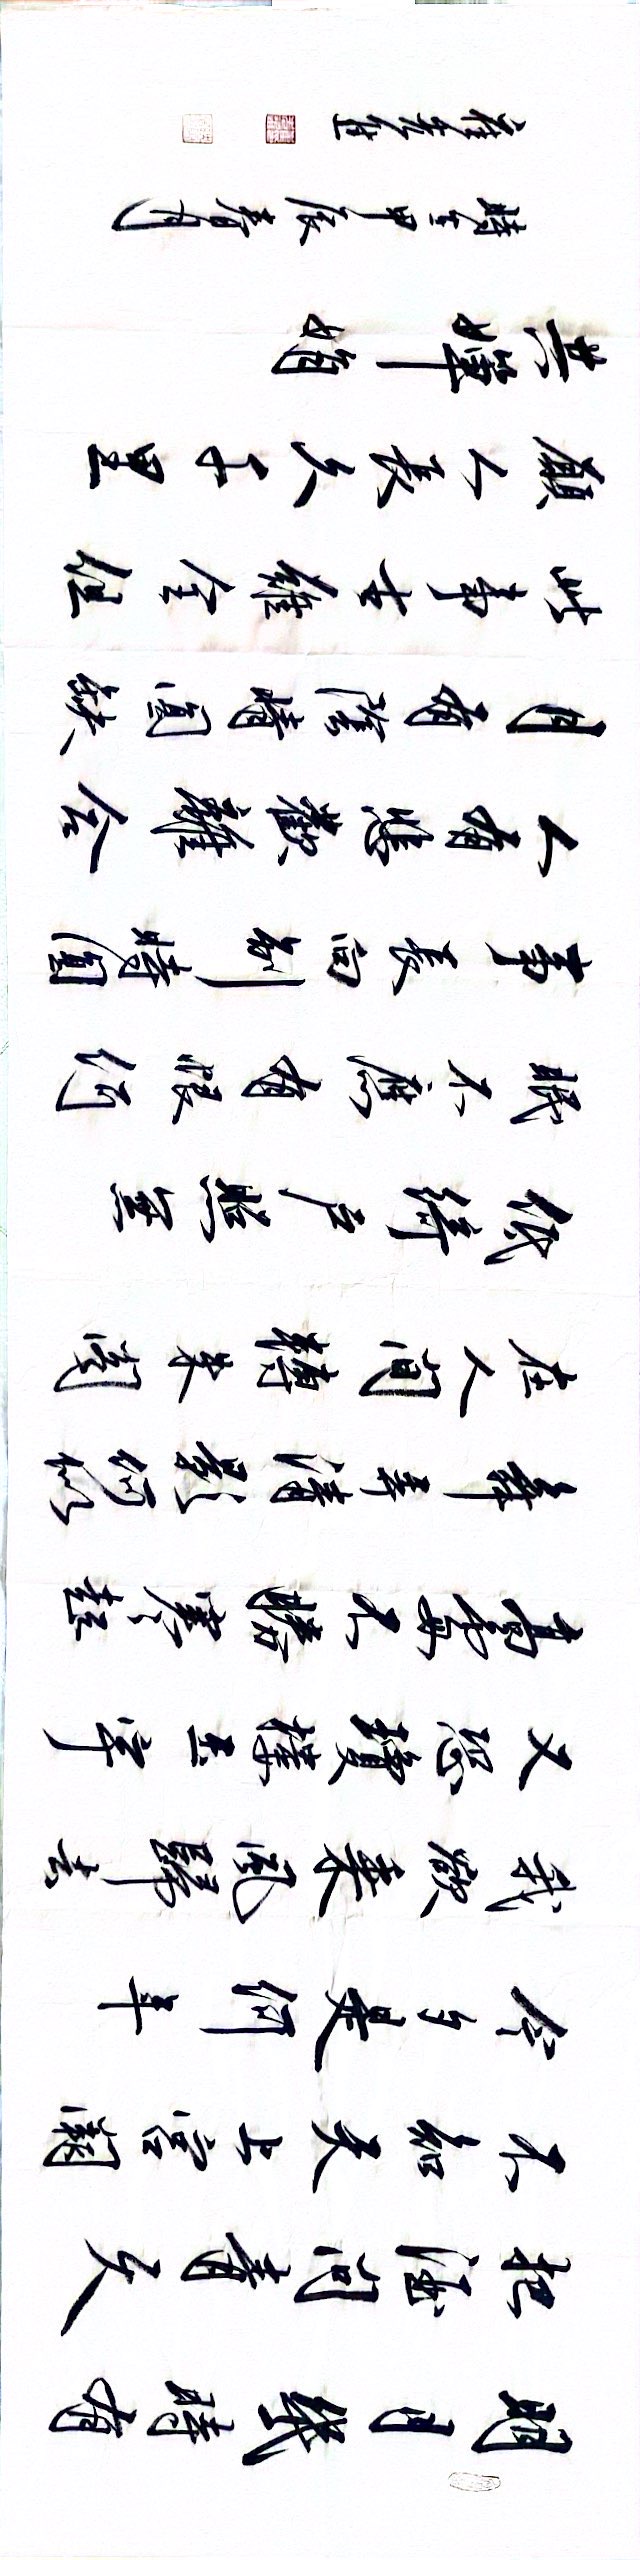 明月幾時有
把酒問青天
不知天上宮闕
今夕是何年
我欲乘風歸去
又恐瓊樓玉宇
高處不勝寒起
舞弄清影何似
在人間轉朱閣
低綺戶照無
眠不應有恨何
事長向別時圓
人有悲歡離合
月有陰晴圓缺
此事古難全但
願人長久千里
共嬋娟
時在甲辰春月
崔光進